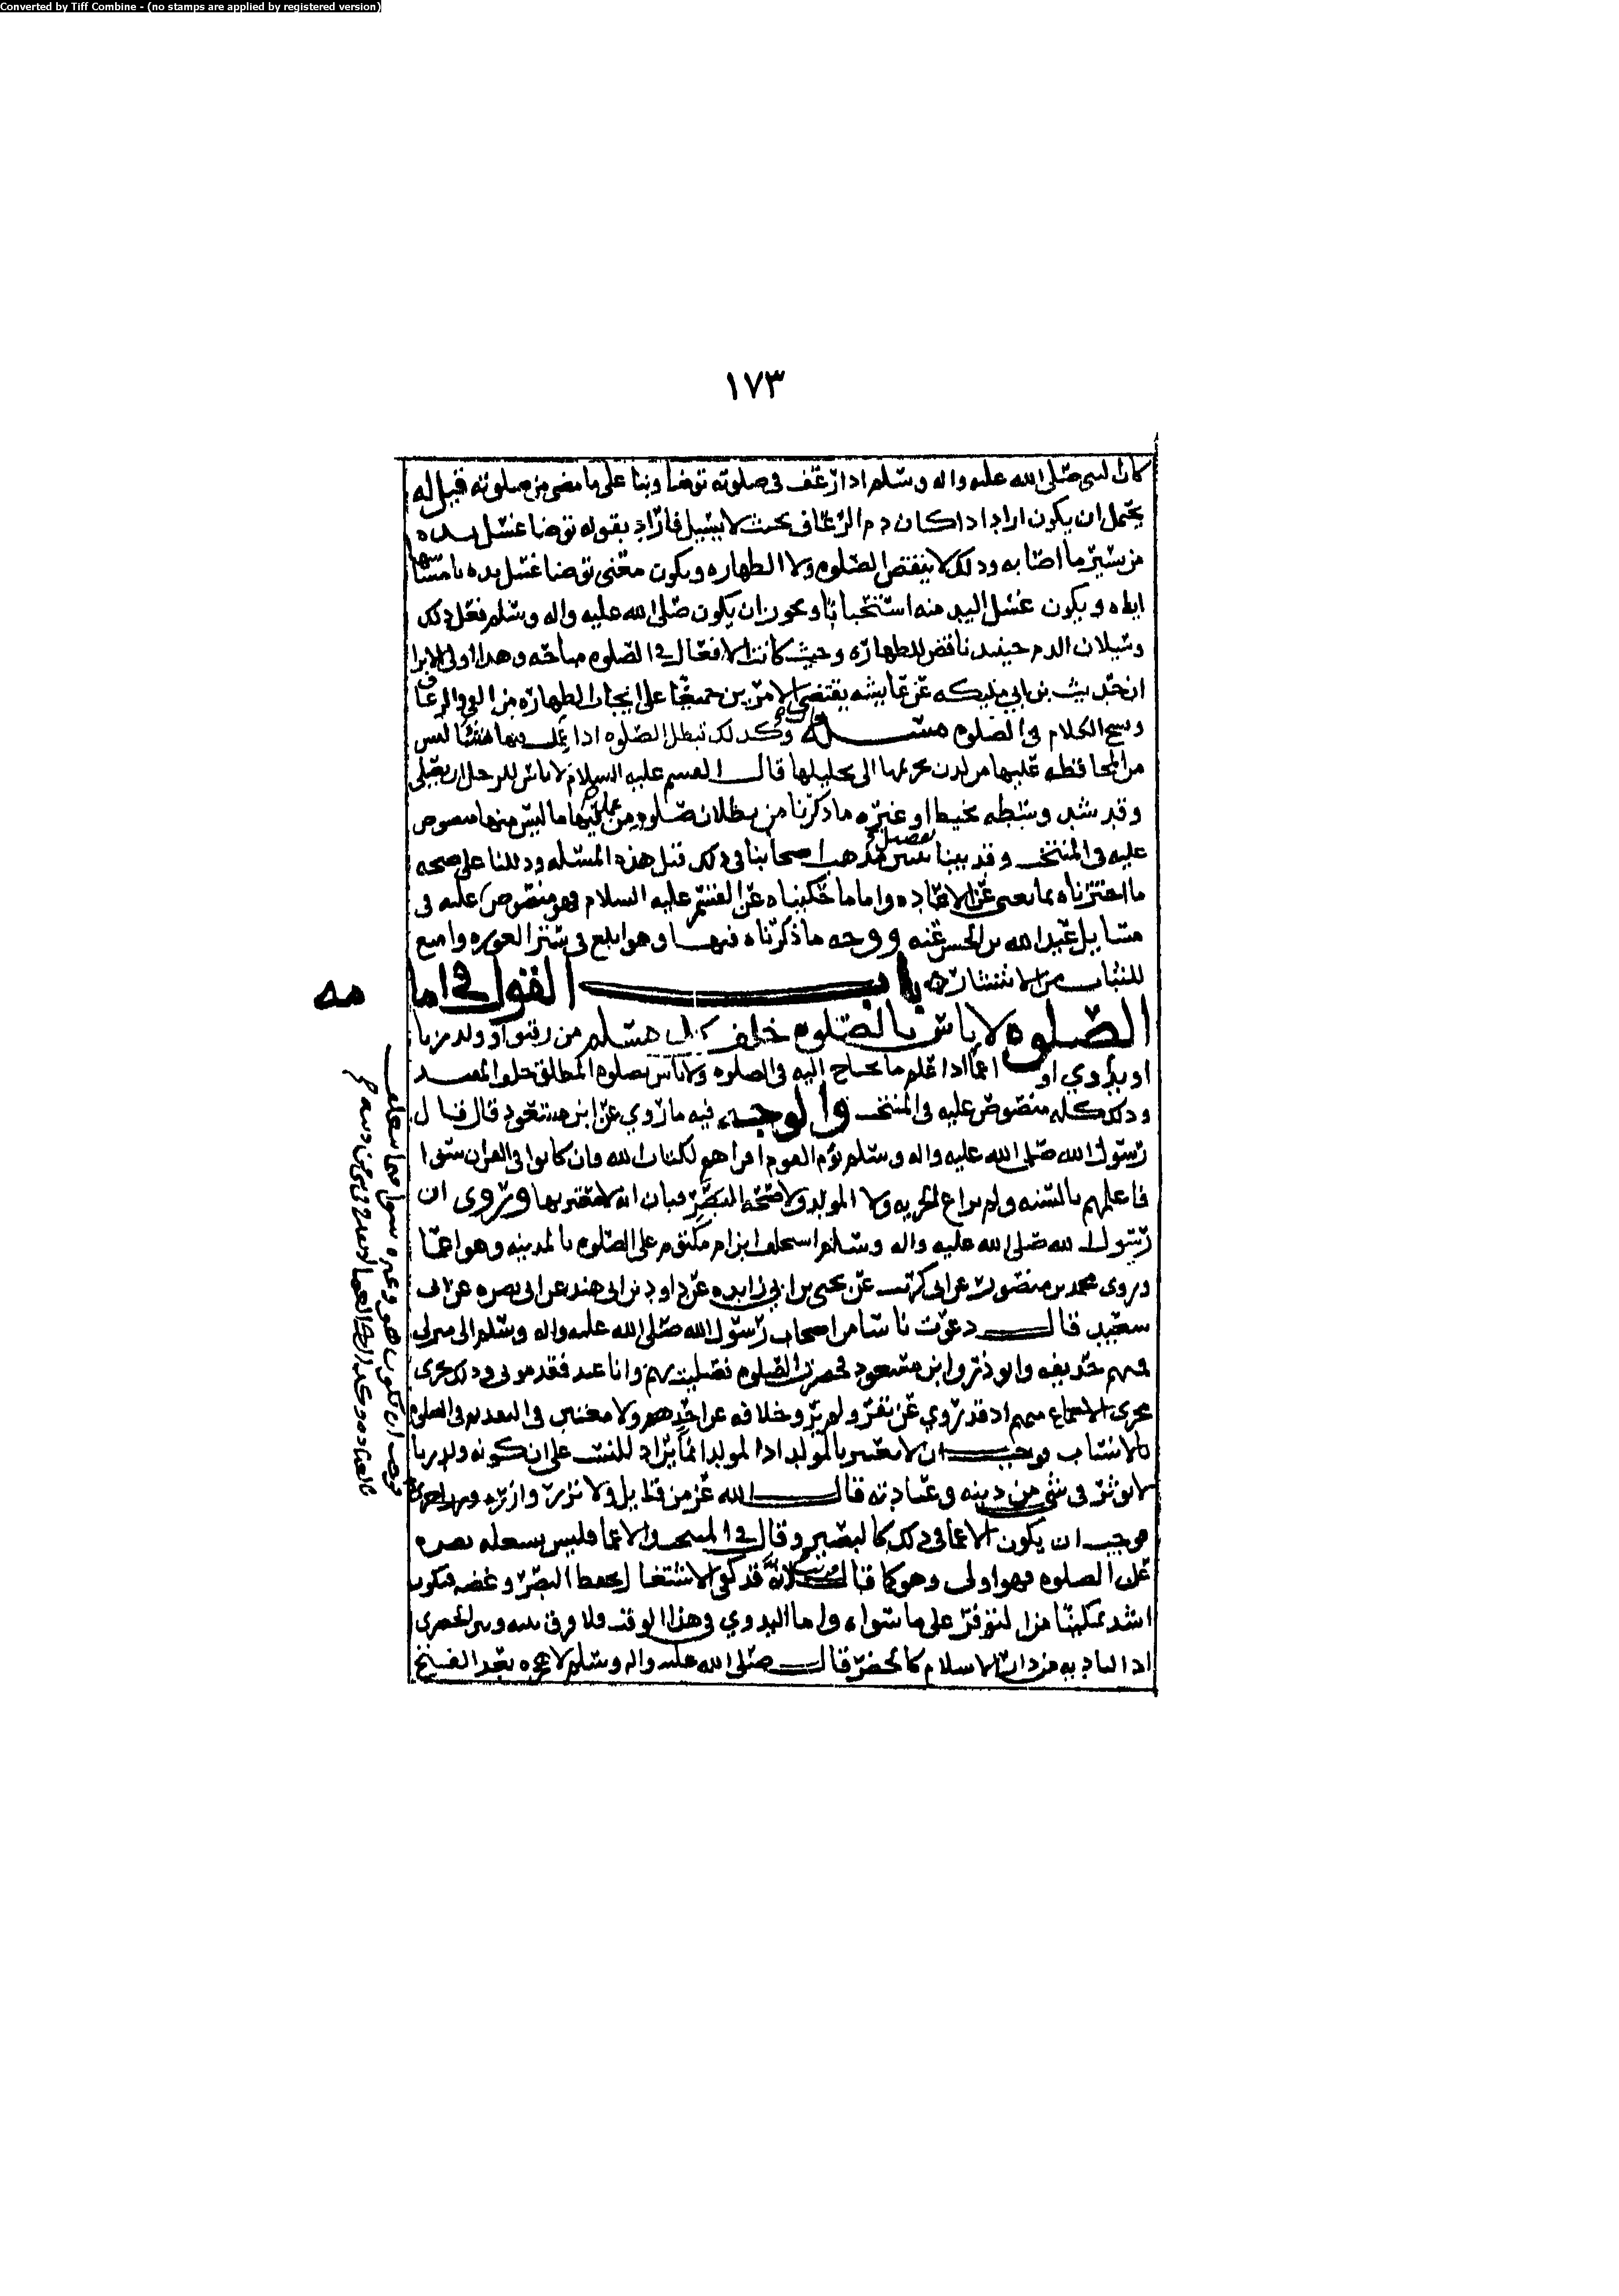 Converted by Tiff Combine - (no stamps are applied by registered version)
١٧٣
كان النبي صلى الله عليه واله وسلم اذا رعف في صلوته توضا وبنا على ما مضى من صلوته قيل له
يحتمل ان يكون اراد اذا كان دم الرعاف بحيث لا يسيل فاراد بقوله توضا غسل يده
من يسير ما اصابه وذلك لا ينقض الصلوه ولا الطهاره ويكون معنى توضا غسل يده
اياه ويكون غسل اليد منه استحبابا ويجوز ان يكون صلى الله عليه واله وسلم فعل ذلك
وسيلان الدم حينئذ ناقض للطهاره وحيث كانت الافعال في الصلوه مباحه وهذا اولى الا ترا
ان حديث بن ابي مليكه عن عايشه يقتضي الامرين جميعًا على ايجاب الطهاره من القي والرعاف
ونسخ الكلام في الصلوه مسئله وكذلك تبطل الصلوه اذا عمل فيها عملا ليس
من المحافظه عليها من لدن تحريمها الى تحليلها قال القسم عليه السلام لا باس للرجل ان يصلي
وقد شد وسطه بخيط او غيره ما ذكرنا من بطلان صلوه من عمل فيها ما ليس منها منصوص
عليه في المنتخب وقد بينا تفصيل مذهب اصحابنا في ذلك قبل هذه المسئله ودللنا على صحه
ما اخترناه بما يغني عن الاعاده واما ما حكيناه عن القسم عليه السلام فهو منصوص عليه في
مسايل عبد الله بن الحسن عنه ووجه ما ذكرناه فيها وهو ابلغ في ستر العوره وامنع
للثياب من الانتشار باب القول في امامه
الصلوه لا باس بالصلوه خلف كل مسلم من رقيق او ولد زنا
او بدوي او اعما اذا علم ما يحتاج اليه في الصلوه ولا باس بصلوه المطلق خلف المقيد
وذلك كله منصوص عليه في المنتخب والوجه فيه ما روي عن ابن مسعود قال قال
رسول الله صلى الله عليه واله وسلم يؤم القوم اقراهم لكتاب الله فان كانوا في القران سوا
فاعلمهم بالسنه ولم يراع الحريه ولا المولد ولا صحه البصر فبان انه لا معتبر بها وروى ان
رسول الله صلى الله عليه واله وسلم استخلف ابن ام مكتوم على الصلوه بالمدينه وهو اعما
وروى محمد بن منصور عن ابي كريب عن يحيى بن ابي زايده عن داود بن ابي هند عن ابي نصره عن ابي
سعيد قال دعوت ناسا من اصحاب رسول الله صلى الله عليه واله وسلم الى منزلي
فيهم حذيفه وابو ذر وابن مسعود فحضرت الصلوه فصليت بهم وانا عبد فقدموني وذلك يجري
مجرى الاجماع منهم اذ قد روي عن نفر ولم يرو خلافه عن احدهم ولا معتبر في التقديم في الصلوه
بالانساب فوجب ان لا يعتبر بالمولد اذ المولد انما يراد للنسب على ان كونه ولد زنا
لا يوثر في شي من دينه وعبادته قال الله عز من قايل ولا تزر وازره وزر اخرى
فوجب ان يكون الاعما في ذلك كالبصير وقال في المنتخب والاعما فليس يشغله بصره
عن الصلوه فهو اولى وهو كما قال لانه قد كفي الاشتغال بحفظ البصر وغضه فيكون
اشد تمكينًا من التوفر على ما سواه واما البدوي في هذا الوقت فلا فرق بينه وبين الحضري
اذ الباديه من دار الاسلام كالحضر قال صلى الله عليه واله وسلم لا هجره بعد الفتح